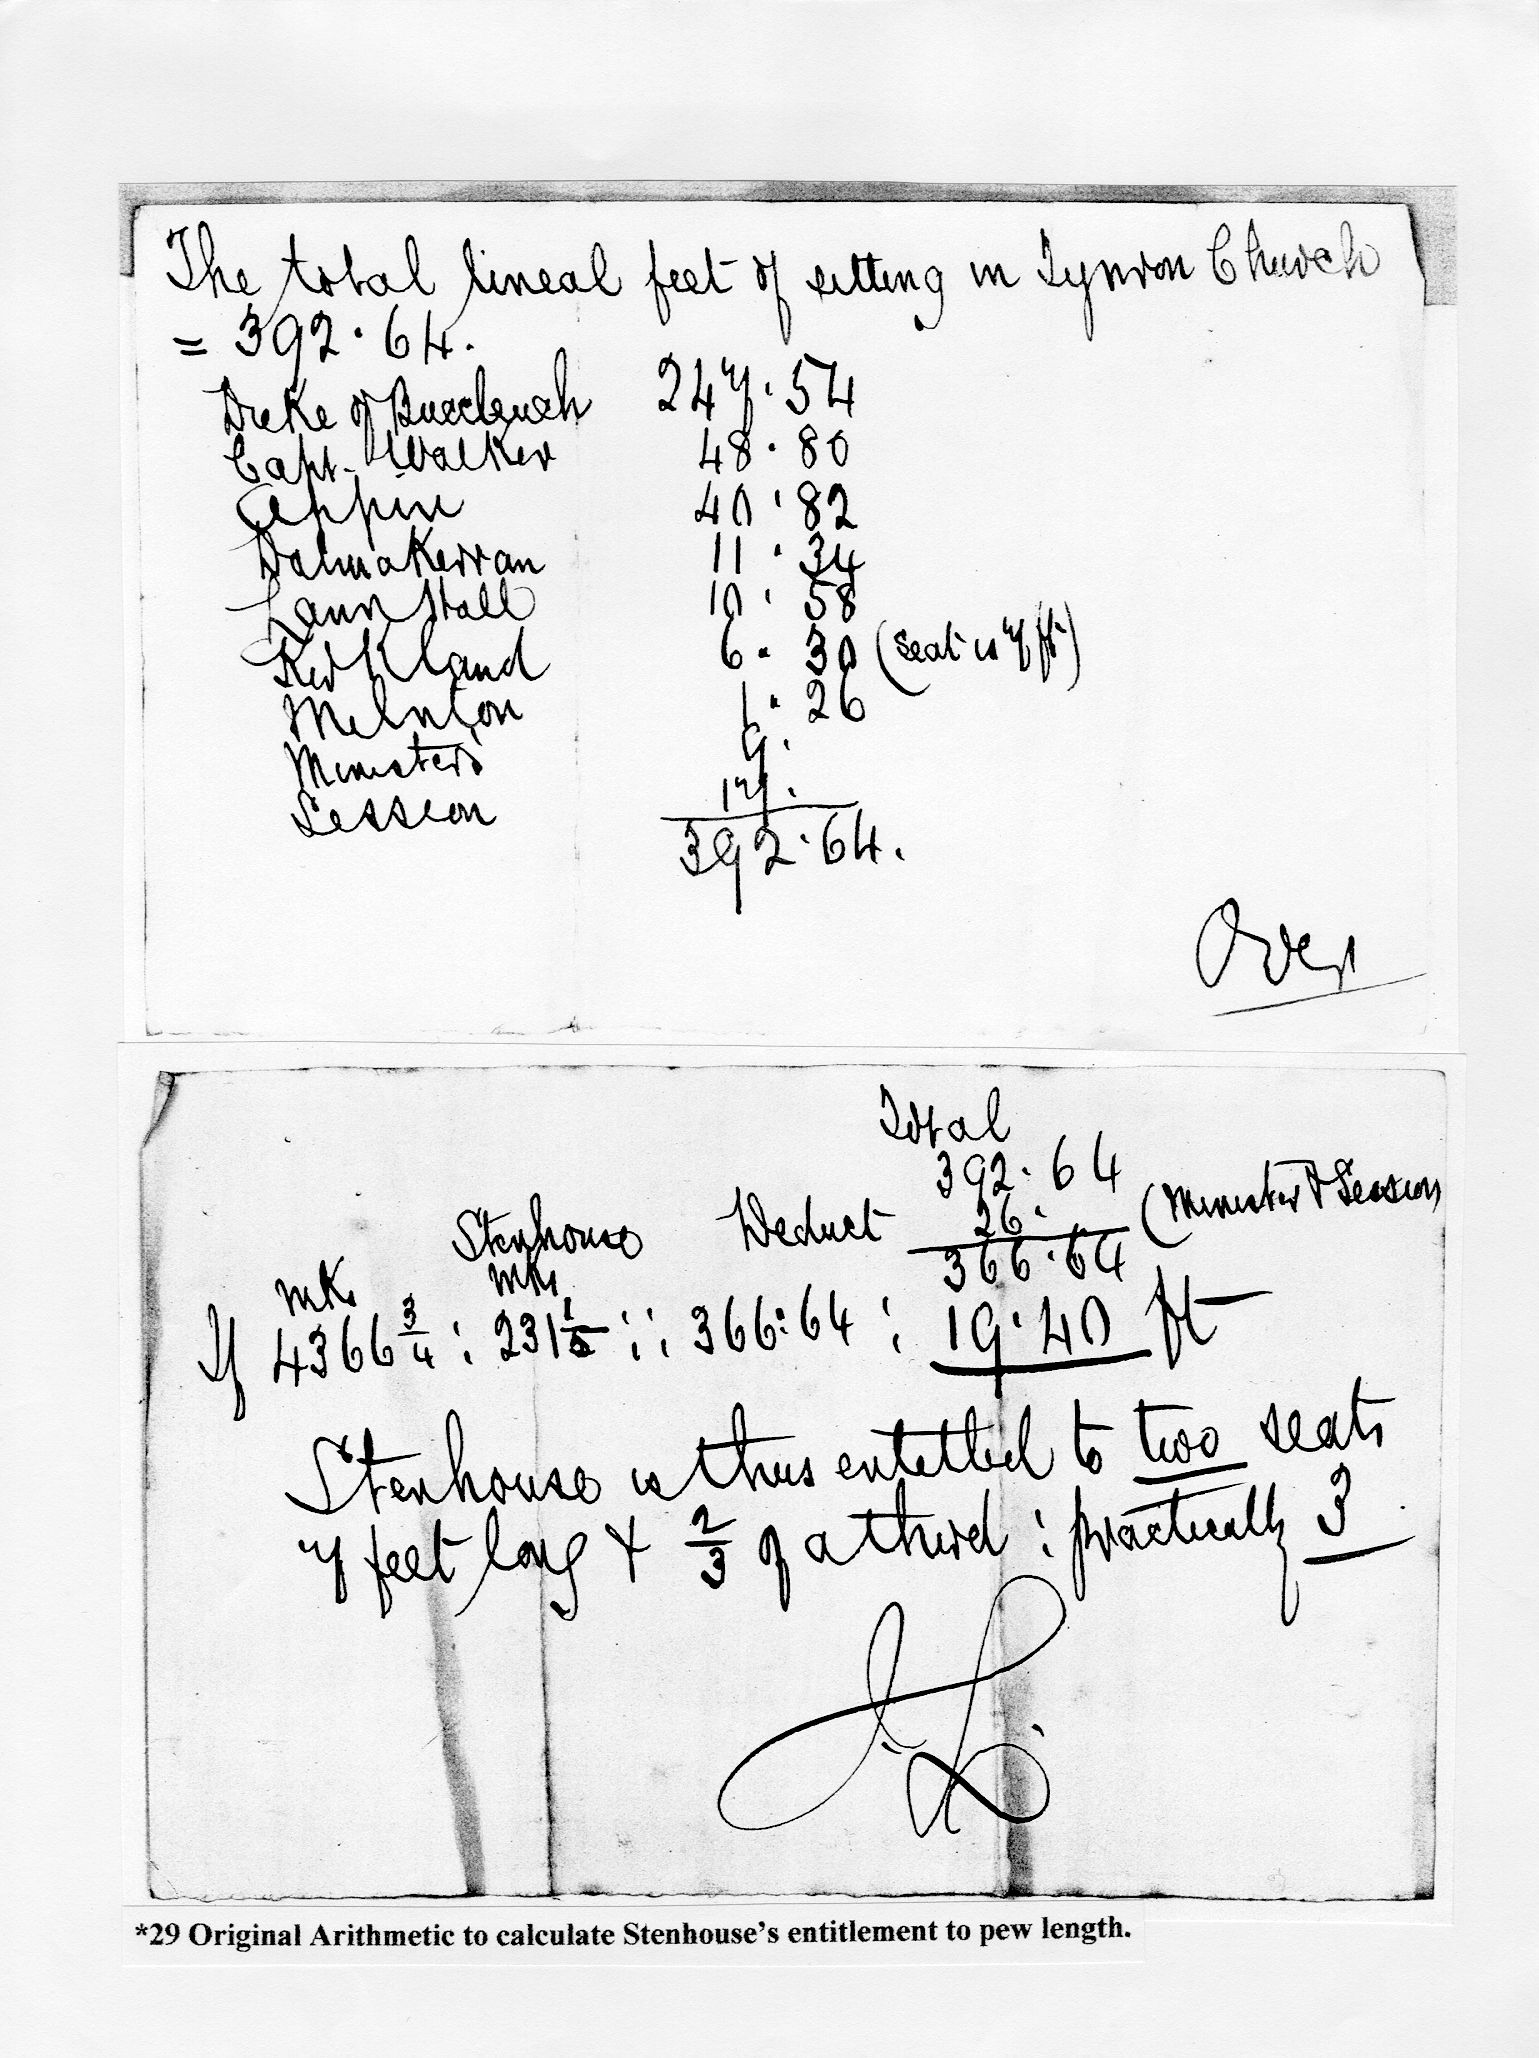 The total lineal feet of sitting in Tynron Church
= 392.64.
Duke of Buccleuch 247.54
Capt. Walker 48.80
Appin 40.82
Dalmakerran 11.34
Lann Hall 10.58
Kirkland 6.30 (seat is 7 ft)
McInton 1.26
Minister's 9.
Session 17.
392.64.
Over
Total
392.64
Stenhouse Deduct 26. (Minister & Session)
366.64
mks mks
If 4366 3/4 : 231 1/5 :: 366.64 : 19.40 ft
Stenhouse is thus entitled to two seats
7 feet long & 2/3 of a third : practically 3
*29 Original Arithmetic to calculate Stenhouse's entitlement to pew length.